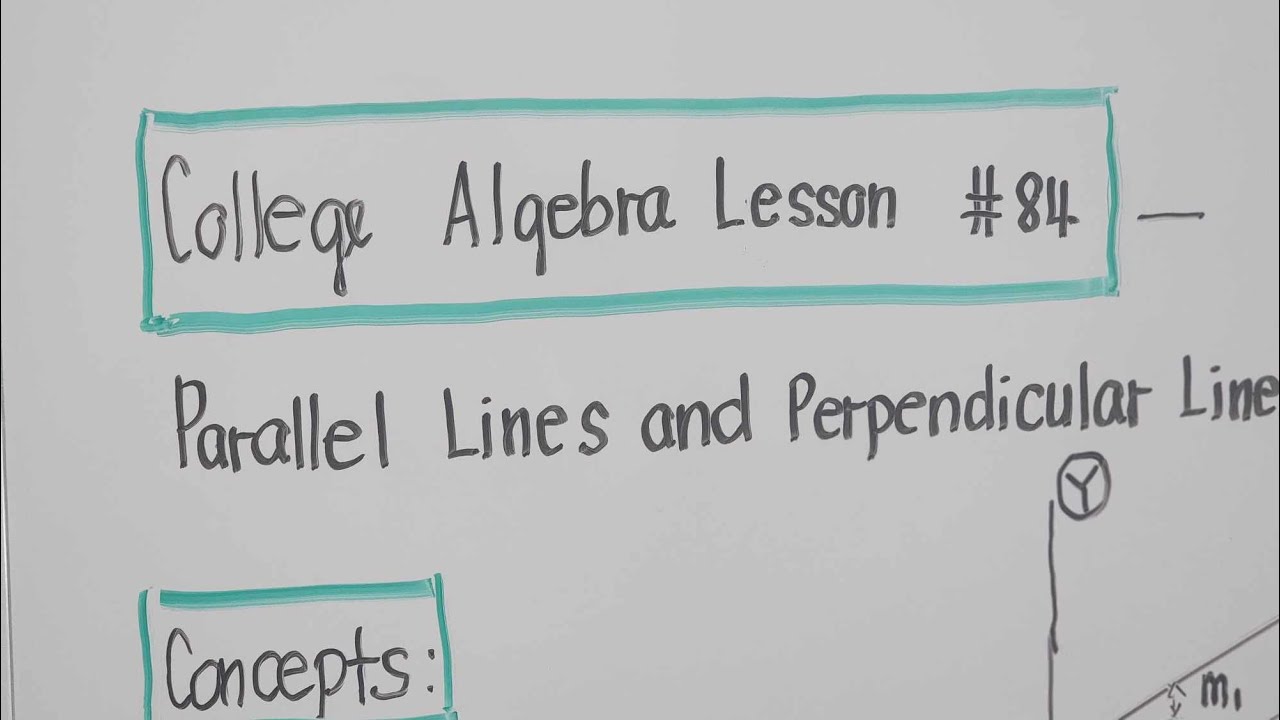 College Algebra Lesson #84 —
Parallel Lines and Perpendicular Line
Y
Concepts:
m₁